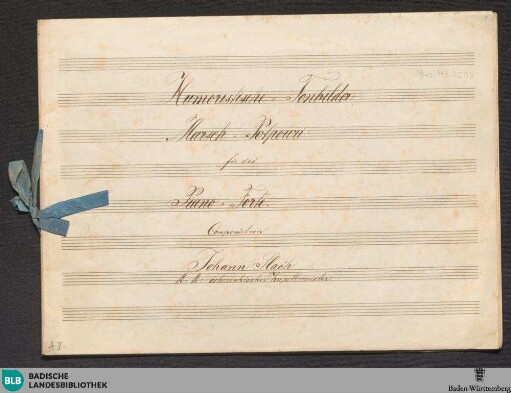 Humoristische Tonbilder
Marsch-Potpouri
für das
Piano-Forte
Componirt von
Johann
K. K.
A I
BLB
BADISCHE
LANDESBIBLIOTHEK
Baden-Württemberg